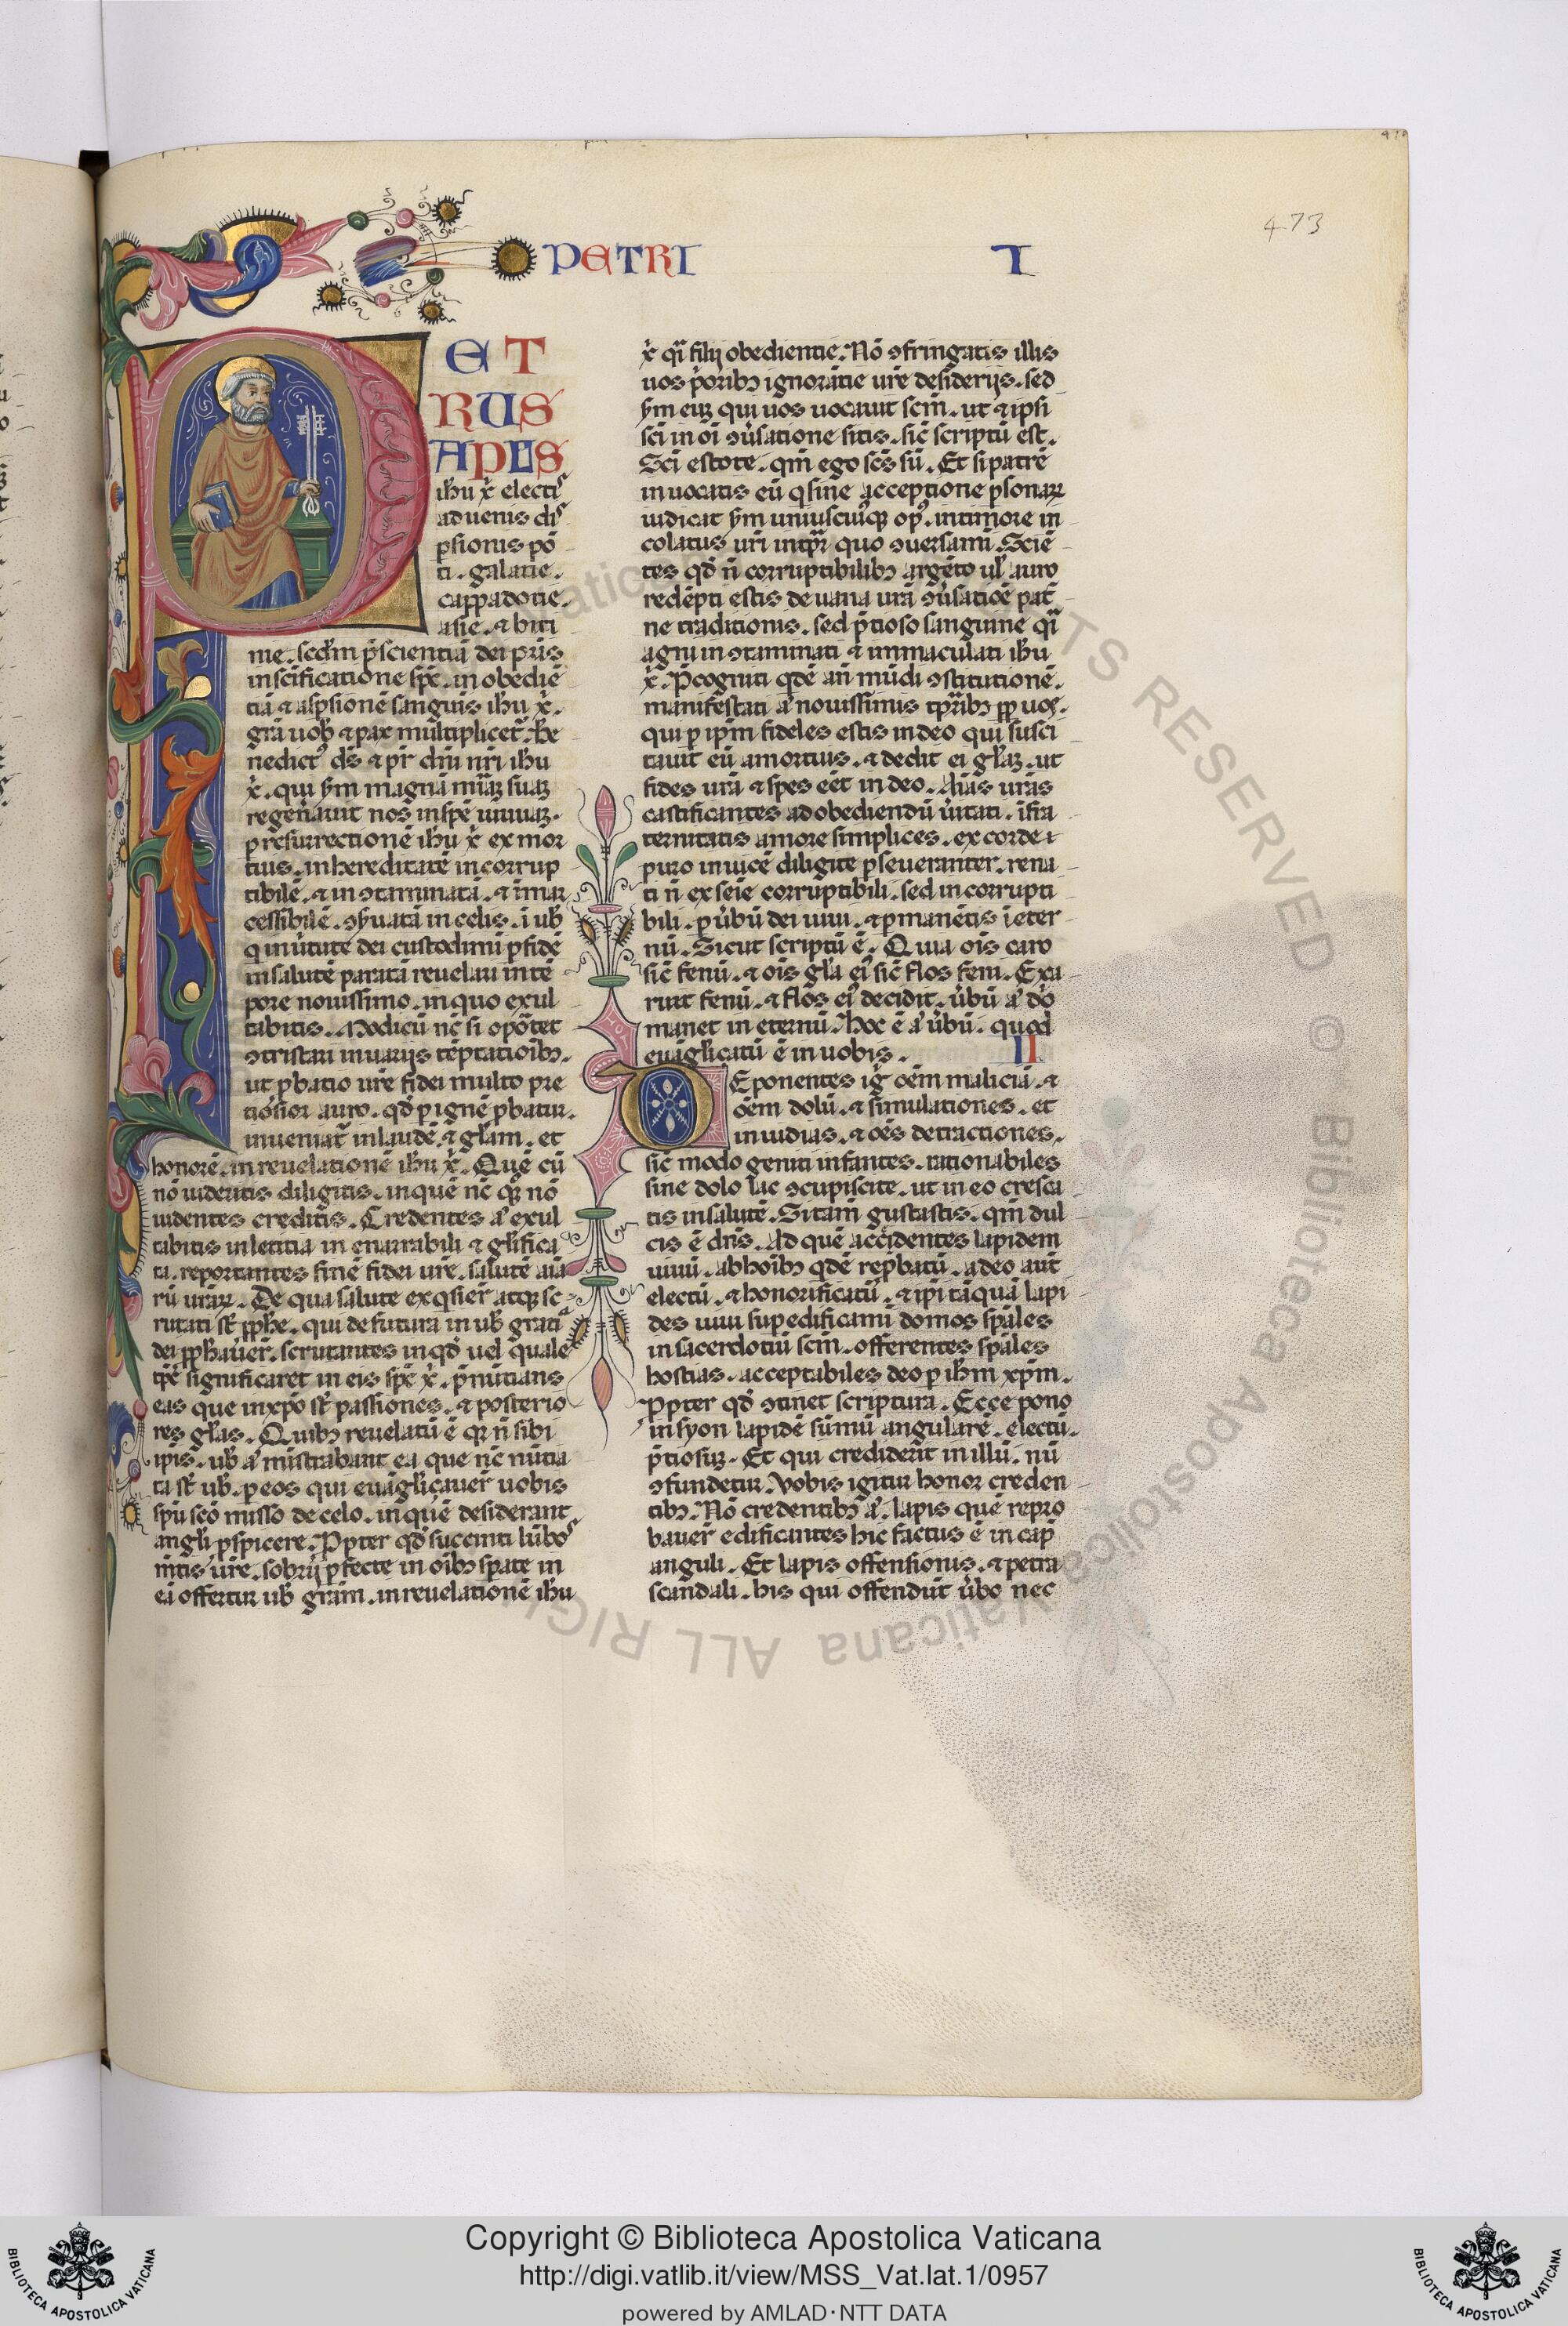 473
PETRI I
PET
RUS
APLS
ihu x̄ electis
aduenis dis
ꝑsionis pō
ti . galatie .
cappadotie .
asie . ⁊ biti
nie . scdm p̄scientiā dei pr̄is
in sc̄ificatione sp̄c . in obediē
tiā ⁊ aspsionē sanguis ihu x̄ .
grā uob̄ ⁊ pax multiplicet̄ . Be
nedictꝰ d̄s ⁊ pr̄ dn̄i nr̄i ihu
x̄ . qui s̄m magnā mīaꝫ suaꝫ
regen̄auit nos in spē uiuaꝫ .
ꝑ resurrectionē ihu x̄ ex mor
tuis . in hereditatē incorrup
tibilē . ⁊ inꝯtaminatā . ⁊ īmar
cessibilē . ꝯs̄uatā in celis . ī uob̄
q in ūtute dei custodimī ꝑ fidē
in salutē paratā reuelari in tē
pore nouissimo . in quo exul
tabitis . Modicū nc̄ si opōtet
ꝯtristari in uarijs tēptatiōibꝫ .
ut ꝓbatio ur̄e fidei multo pre
tiosior auro . qd̄ ꝑ ignē ꝓbatur .
inueniat̄ in laudē . ⁊ glām . et
honorē . in reuelationē ihu x̄ . Quē cū
nō uideritis diligitis . in quē nc̄ qꝫ nō
uidentes creditis . Credentes ā exul
tabitis in letitia in enarrabili ⁊ glīfica
ta . reportantes finē fidei ur̄e . salutē aīa
rū urāꝝ . De qua salute exqsier̄ atqꝫ sc
rutati st̄ ꝓphe . qui de futura in uob̄ gratia
dei ꝓphauer̄ . scrutantes in qd̄ uel quale
tp̄c significaret in eis sp̄c x̄ . p̄nūtians
eas que in xp̄o st̄ passiones . ⁊ posterio
res glās . Quibꝫ reuelatū ē qꝫ n̄ sibi
ip̄is . uob̄ ā ministrabant ea que nc̄ nūtia
ta st̄ uob̄ . ꝑ eos qui euāglīcauer̄ uobis
sp̄u scō misso de celo . in quē desiderant
angli ꝓspicere . Ꝓpter qd̄ succinti lūbos
mētis ur̄e . sobrij ꝑfecte in oībꝫ sperate in
eā offertur uob̄ grām . in reuelationē ihu
x̄ qī filij obedientie . Nō ꝯfringatis illis
uos p̄oribꝫ ignorātie ur̄e desiderijs . sed
s̄m euꝫ qui uos uocauit scm̄ . ut ⁊ ipsi
scī in oī ꝯūsatione sitis . sic̄ scriptū est .
Scī estote . qm̄ ego scs̄ sū . Et si patrē
inuocatis eū q sine acceptione ꝑsonaꝝ
iudicat s̄m uniuscuiꝰqꝫ opꝰ . in timore in
colatus ur̄i intp̄r quo ꝯuersamī . Sciē
tes qd̄ n̄ corruptibilibꝫ argēto ul̄ auro
redēpti estis de uana urā ꝯūsatiōē pat̄
ne traditionis . sed p̄tioso sanguine qī
agni inꝯtaminati ⁊ immaculati ihu
x̄ . P̄cogniti qdē an̄ mūdi ꝯstitutionē .
manifestati ā nouissimis tp̄ribꝫ ꝓp̄ uos .
qui ꝑ ipm̄ fideles estis in deo qui susci
tauit eū a mortuis . ⁊ dedit ei glāꝫ . ut
fides urā ⁊ spes eēt in deo . Aīas urās
castificantes ad obediendū ūitati . ī fra
ternitatis amore simplices . ex corde
puro inuicē diligite ꝑseueranter . rena
ti n̄ ex seīe corruptibili . sed incorrupti
bili . ꝑ ūbū dei uiui . ⁊ ꝑmanētis ī eter
nū . Sicut scriptū ē . Quia oīs caro
sic̄ fenū . ⁊ oīs glā eiꝰ sic̄ flos feni . Exa
ruit fenū . ⁊ flos eiꝰ decidit . ūbū ā dō
manet in eternū . Hoc ē ā ūbū . quod
euāglīcatū ē in uobis . II
DEponentes iḡ oēm maliciā . ⁊
oēm dolū . ⁊ simulationes . et
inuidias . ⁊ oēs detractiones .
sic̄ modo geniti infantes . rationabiles
sine dolo lac ꝯcupiscite . ut in eo cresca
tis in salutē . Si tam̄ gustastis . qm̄ dul
cis ē dn̄s . Ad quē accidentes lapidem
uiuū . ab hoībꝫ qdē reꝓbatū . a deo aut̄
electū . ⁊ honorificatū . ⁊ ip̄i tāquā lapi
des uiui suꝑ edificamī domos sp̄ales
in sacerdotiū scm̄ . offerentes sp̄ales
hostias . acceptabiles deo ꝑ ihm̄ xp̄m .
Ꝓpter qd̄ ꝯtinet scriptura . Ecce pono
in syon lapidē sūmū angularē . electū .
p̄tiosuꝫ . Et qui crediderit in illū . nū
ꝯfundetur . Vobis igitur honor creden
tibꝫ . Nō credentibꝫ ā . lapis quē repro
bauer̄ edificantes hic factus ē in cap̄
anguli . Et lapis offensionis . ⁊ petra
scandali . his qui offendūt ūbo nec
Copyright © Biblioteca Apostolica Vaticana
http://digi.vatlib.it/view/MSS_Vat.lat.1/0957
powered by AMLAD·NTT DATA
BIBLIOTECA APOSTOLICA VATICANA
BIBLIOTECA APOSTOLICA VATICANA
ALL RIGHTS RESERVED © Biblioteca Apostolica Vaticana